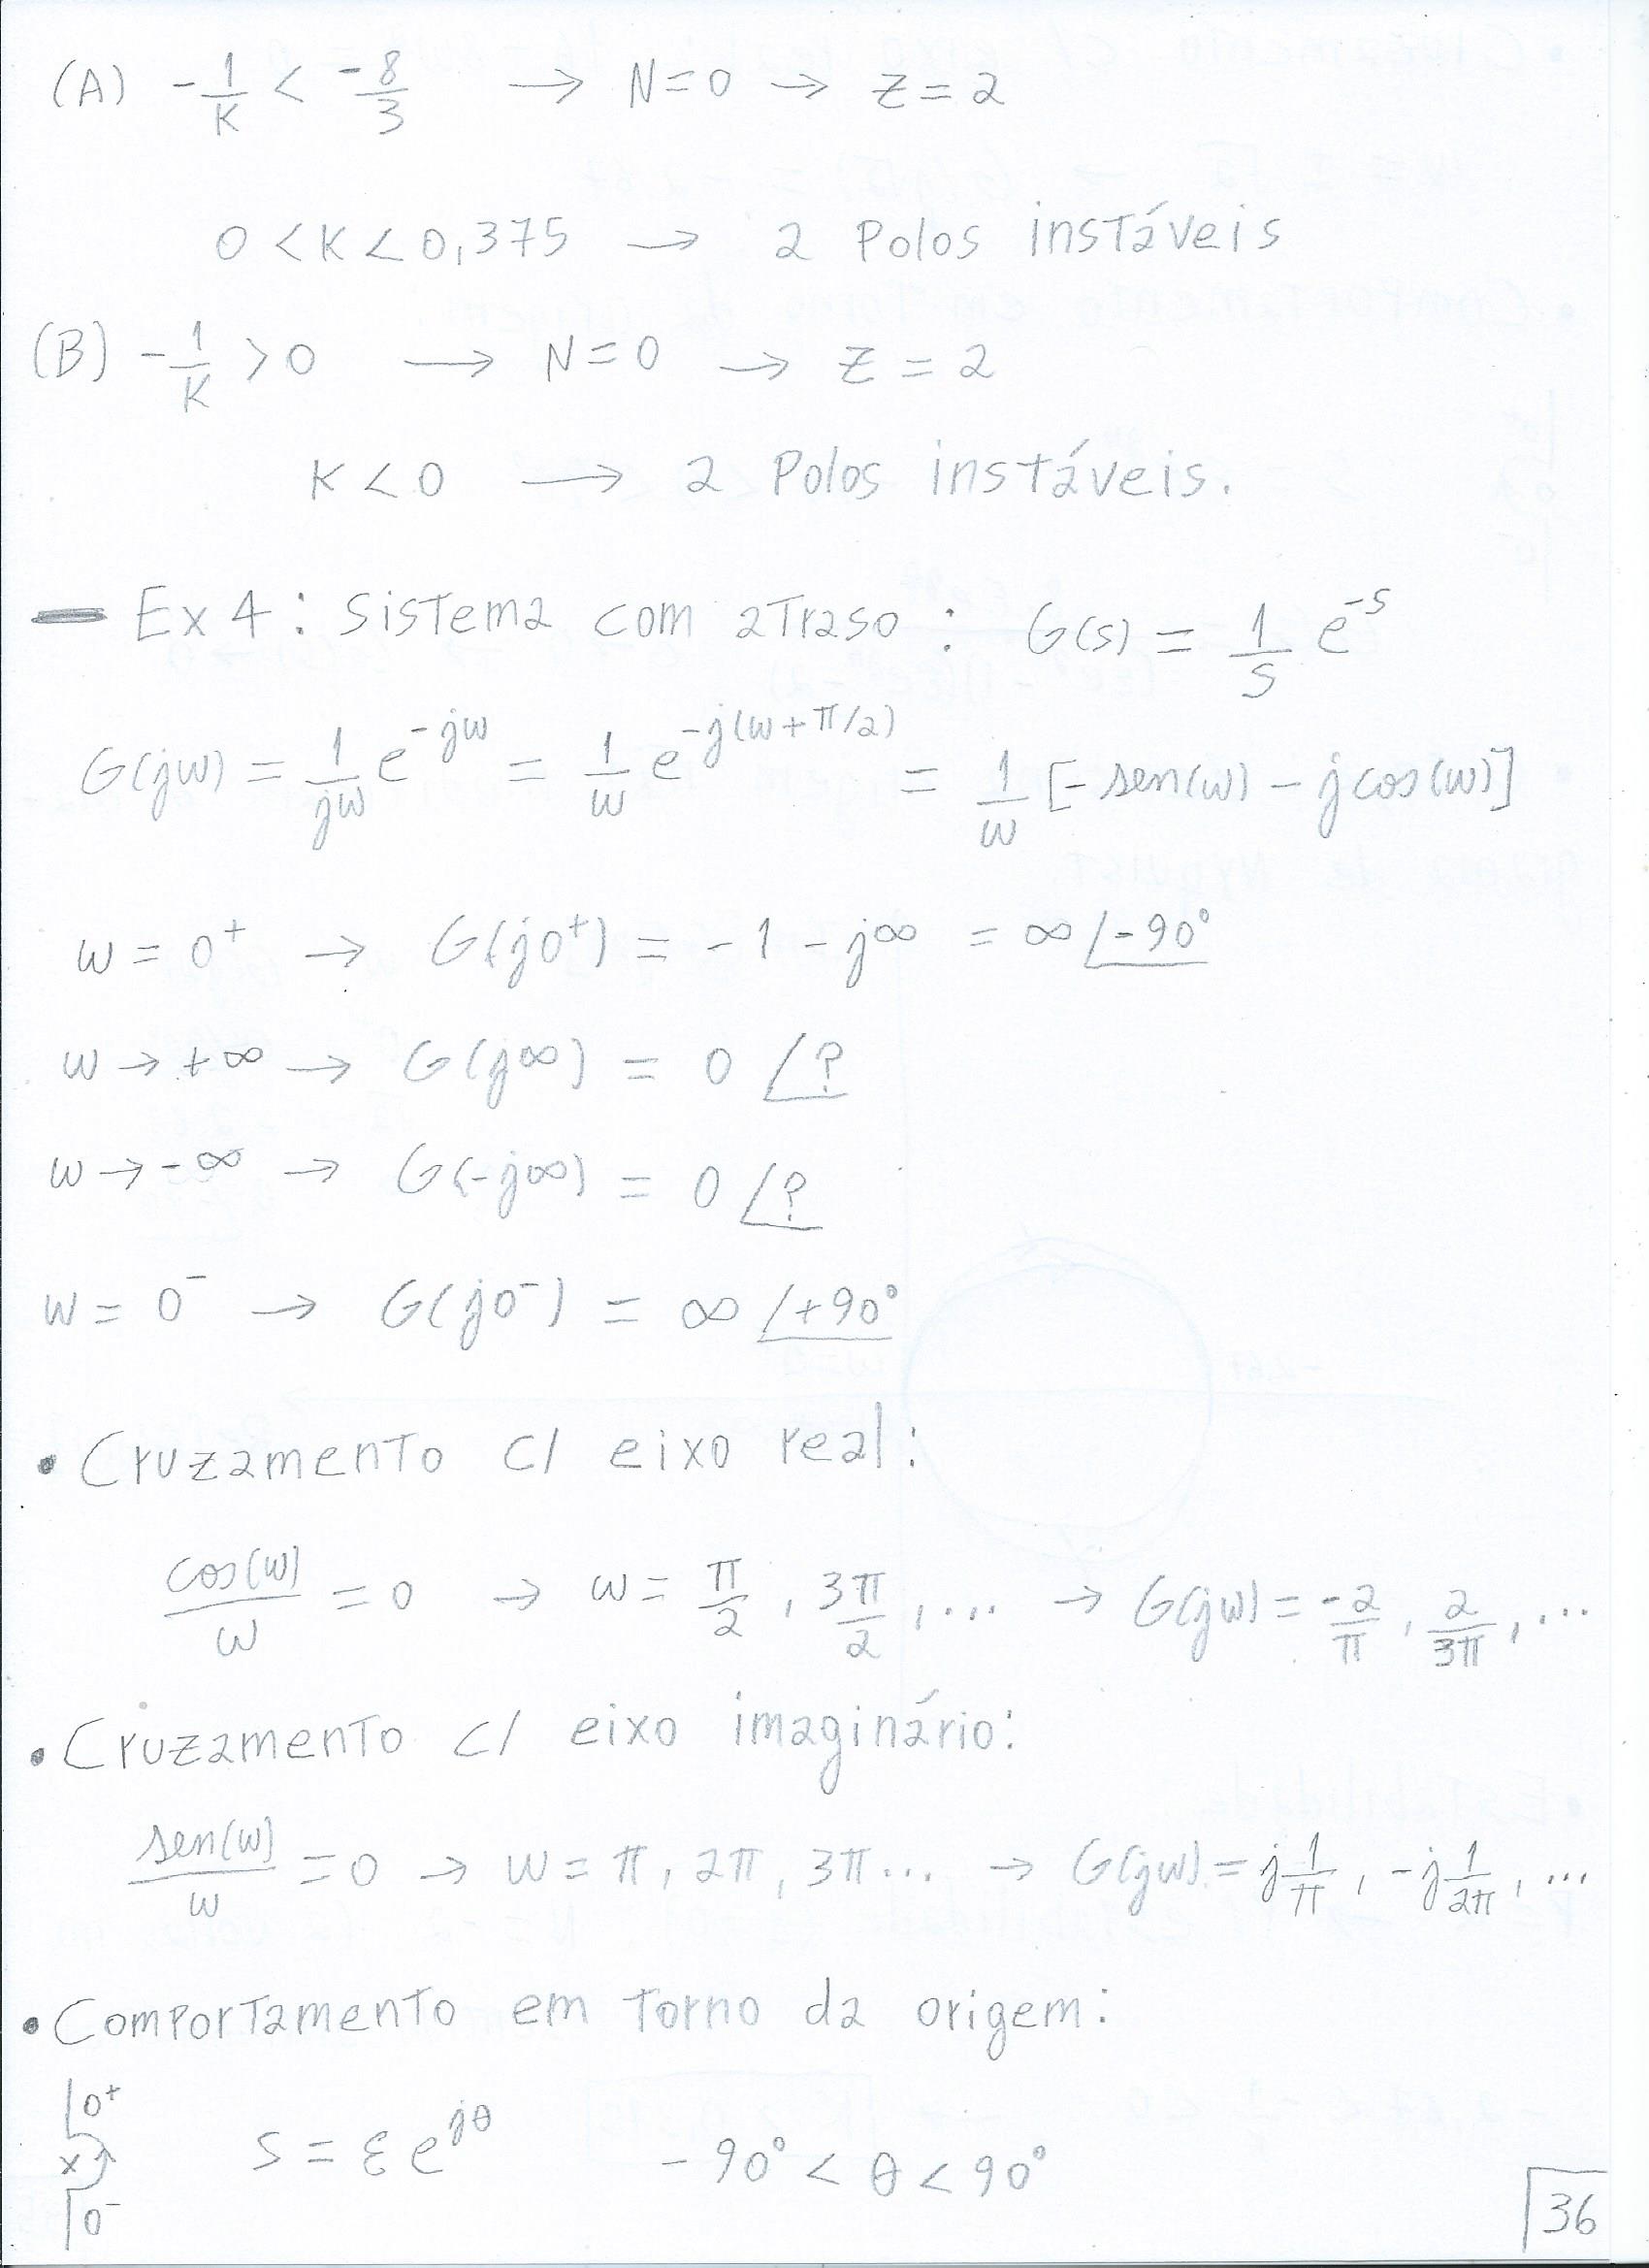 (A) -1/K < -8/3 → N=0 → Z=2
0<K<0,375 → 2 Polos instáveis
(B) -1/K > 0 → N=0 → Z=2
K<0 → 2 Polos instáveis.
- Ex4: Sistema com atraso: G(s) = 1/s e^-s
G(jw) = 1/jw e^-jw = 1/w e^-j(w+π/2) = 1/w [-sen(w) - jcos(w)]
w = 0+ → G(j0+) = -1 - j∞ = ∞ /-90°
w → +∞ → G(j∞) = 0 /?
w → -∞ → G(-j∞) = 0 /?
w = 0- → G(j0-) = ∞ /+90°
• Cruzamento c/ eixo real:
cos(w)/w = 0 → w = π/2, 3π/2, ... → G(jw) = -2/π, 2/3π, ...
• Cruzamento c/ eixo imaginário:
sen(w)/w = 0 → w = π, 2π, 3π... → G(jw) = j1/π, -j1/2π, ...
• Comportamento em torno da origem:
0+
x
0-
s = εe^jθ -90° < θ < 90°
36